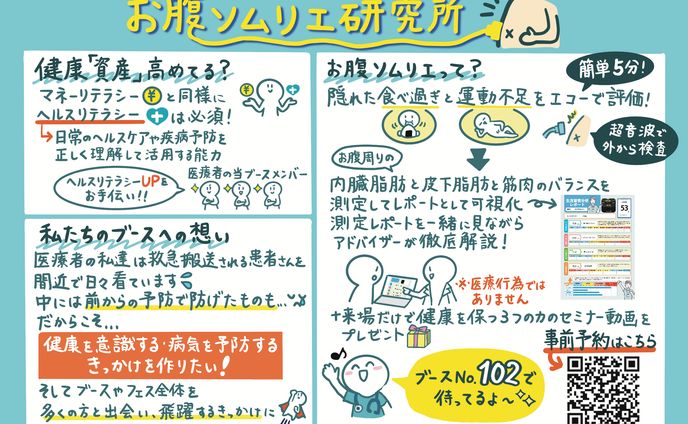 お腹ソムリエ研究所
健康「資産」高めてる？
マネーリテラシー¥と同様に
ヘルスリテラシー+は必須！
→日常のヘルスケアや疾病予防を
正しく理解して活用する能力
ヘルスリテラシーUPを
お手伝い!!
医療者の当ブースメンバー
私たちのブースへの想い
医療者の私達は救急搬送される患者さんを
間近で日々看ています
中には前からの予防で防げたものも…
だからこそ…
健康を意識する・病気を予防する
きっかけを作りたい！
そしてブースやフェス全体を
多くの方と出会い、飛躍するきっかけに
お腹ソムリエって？
簡単5分！
隠れた食べ過ぎと運動不足をエコーで評価！
超音波で
外から検査
お腹周りの
内臓脂肪と皮下脂肪と筋肉のバランスを
測定してレポートとして可視化
測定レポートを一緒に見ながら
アドバイザーが徹底解説！
53
※医療行為では
ありません
+来場だけで健康を保つ3つの力のセミナー動画を
プレゼント
事前予約はこちら
ブースNo.102で
待ってるよ〜